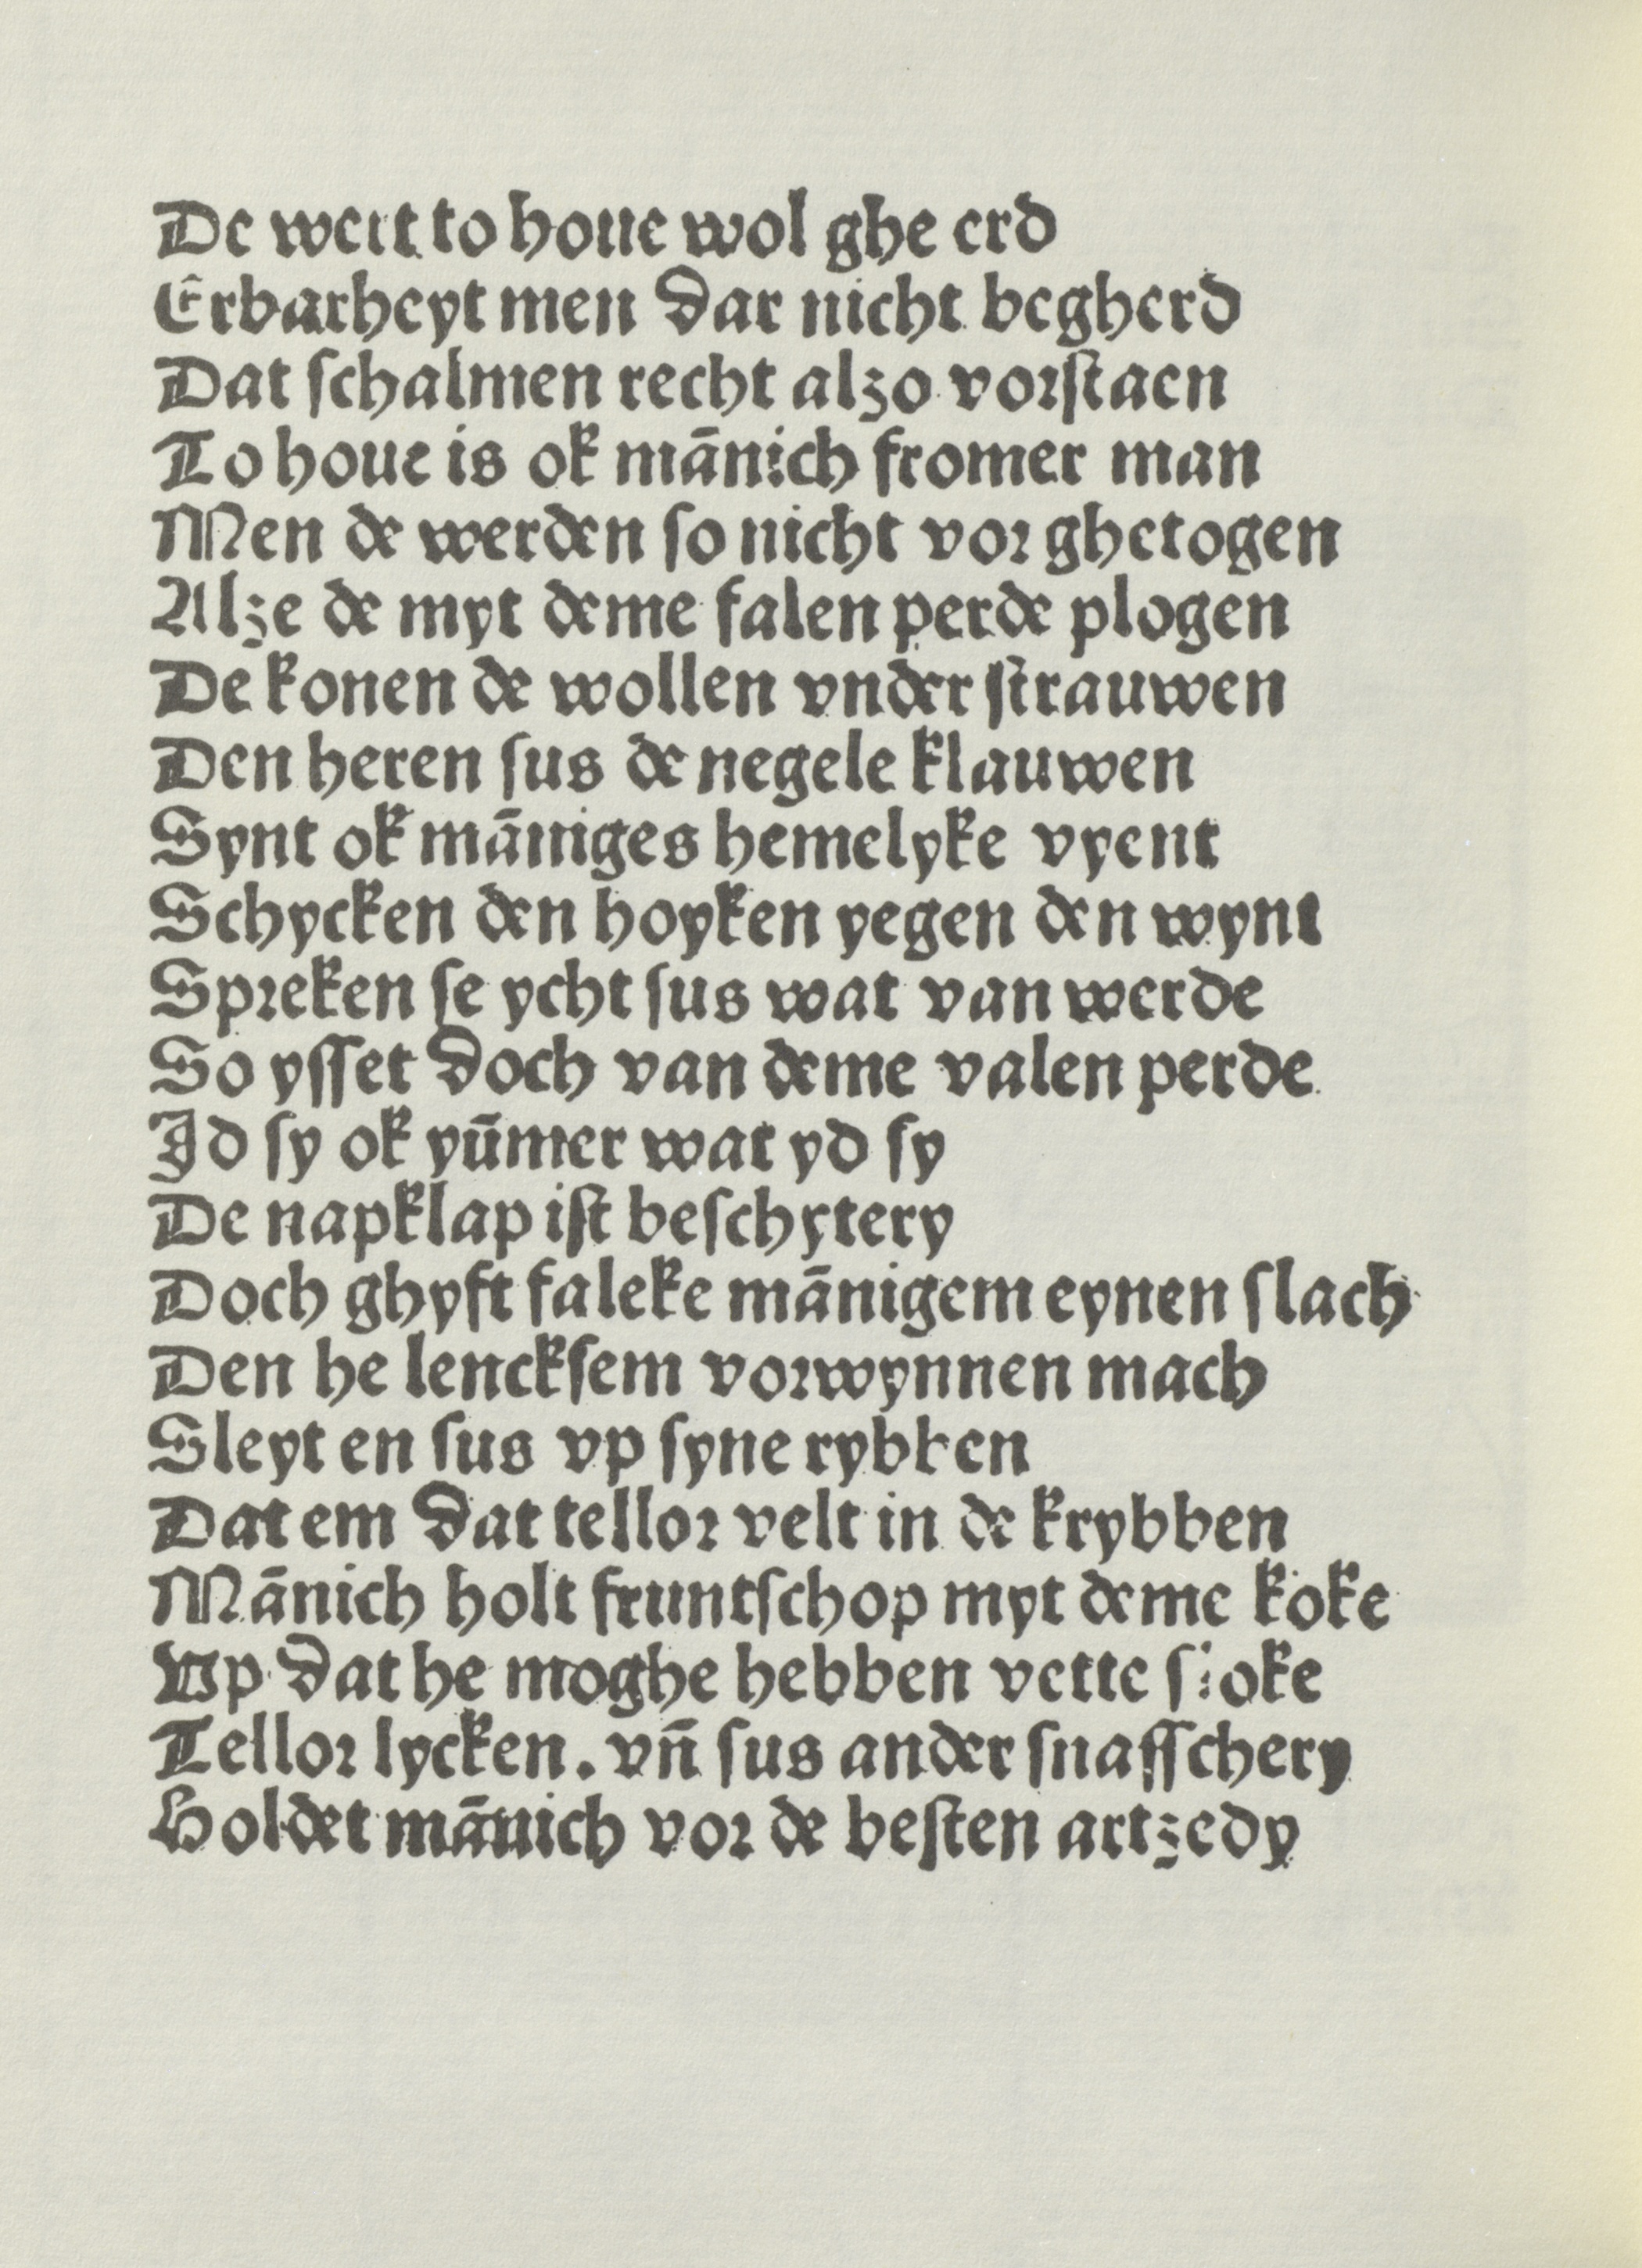 De wert to houe wol ghe erd
Erbarheyt men dar nicht begherd
Dat ſchalmen recht alzo vorſtaen
To houe is ok mānich fromer man
Men de werden ſo nicht vor ghetogen
Alze de myt deme falen perde plogen
De konen de wollen vnder ſtrauwen
Den heren ſus de negele klauwen
Synt ok māniges hemelyke vyent
Schycken den hoyken yegen den wynt
Spreken ſe ycht ſus wat van werde
So yſſet doch van deme valen perde
Id ſy ok yūmer wat yd ſy
De napklap iſt beſchytery
Doch ghyft faleke mānigem eynen ſlach
Den he lenckſem vorwynnen mach
Sleyt en ſus vp ſyne rybben
Dat em dat tellor velt in de krybben
Mānich holt fruntſchop myt deme koke
Vp dat he moghe hebben vette ſroke
Tellor lycken. vn̄ ſus ander ſnaſſchery
Holdet mānich vor de beſten artzedy